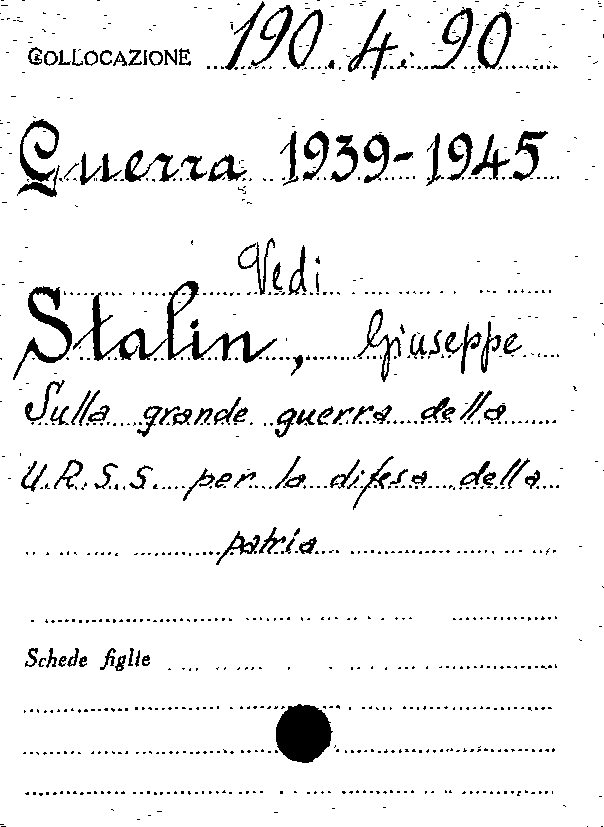 COLLOCAZIONE 190.4.90
Guerra 1939-1945
Vedi
Stalin, Giuseppe
Sulla grande guerra della
U.R.S.S. per la difesa della
patria
Schede figlie